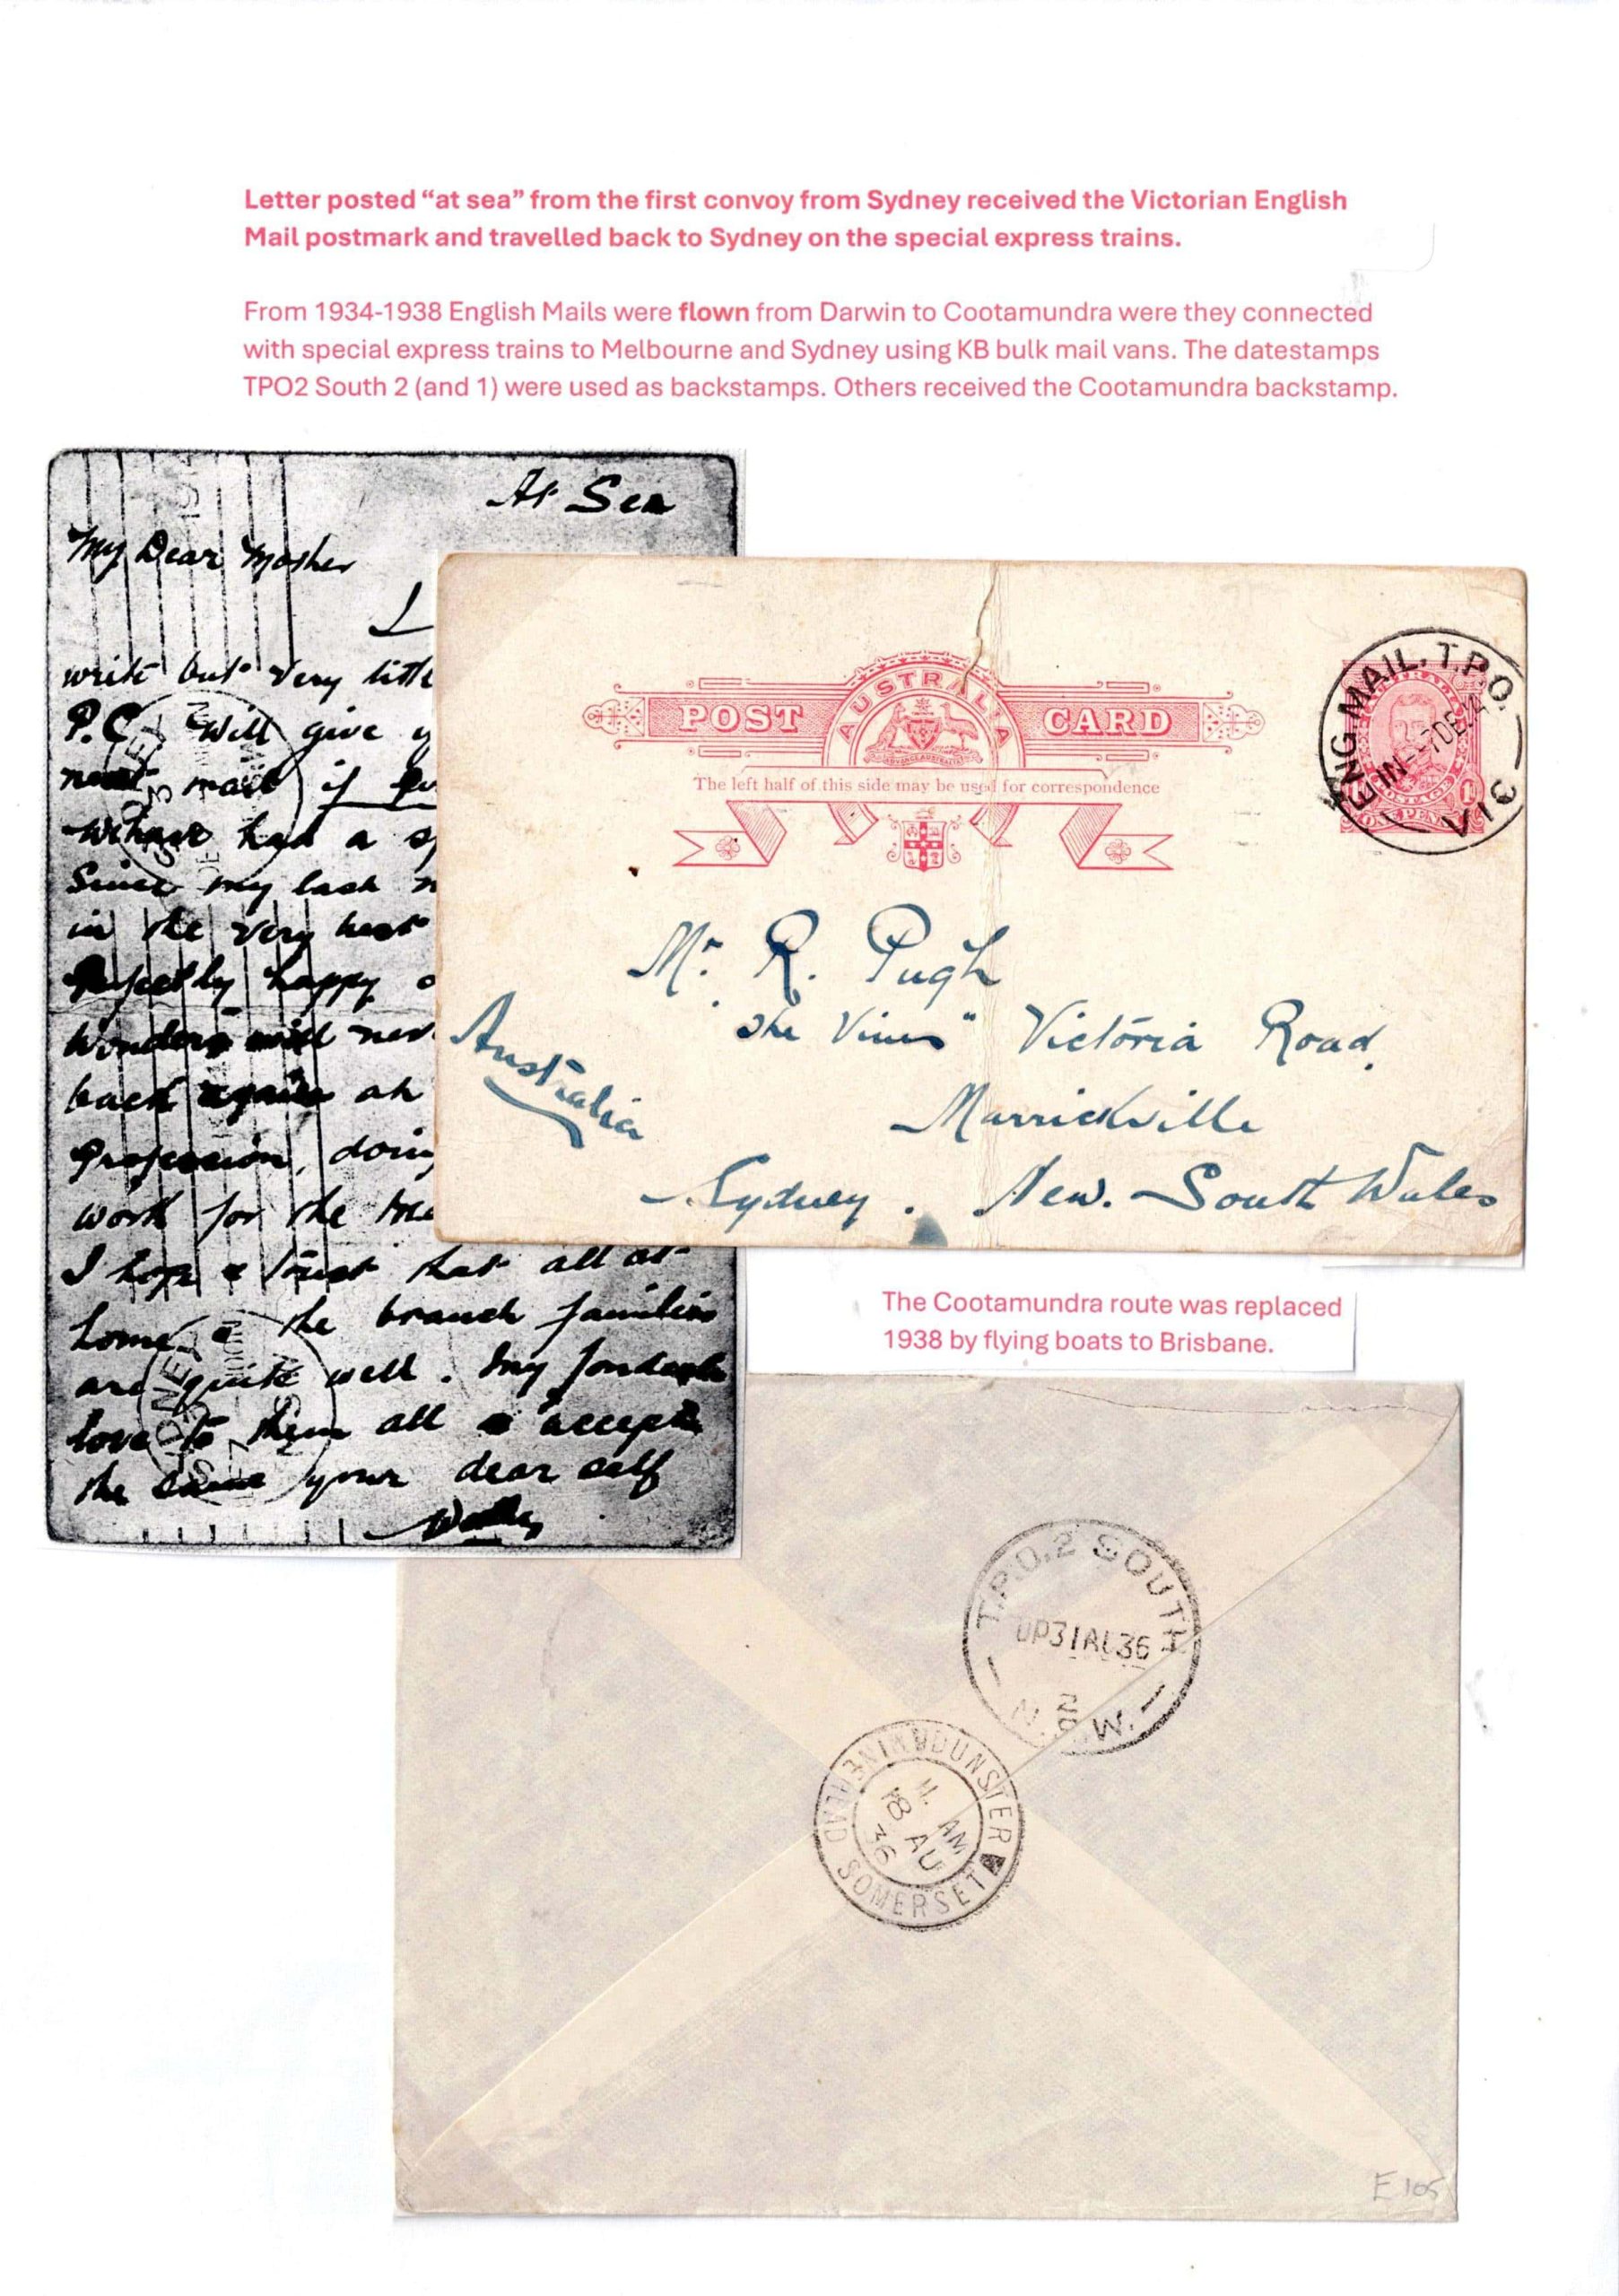 Letter posted “at sea” from the first convoy from Sydney received the Victorian English
Mail postmark and travelled back to Sydney on the special express trains.
From 1934-1938 English Mails were flown from Darwin to Cootamundra were they connected
with special express trains to Melbourne and Sydney using KB bulk mail vans. The datestamps
TPO2 South 2 (and 1) were used as backstamps. Others received the Cootamundra backstamp.
At Sea
My Dear Mother
write but very
P.C. Will give
next mail if
We have had a
Since my last
in the very best
Perfectly happy
Wonders will
back again
Profession, doing
work for the
I hope & trust that all at
home & the branch families
are quite well. My fondest
love to them all & accept
the same your dear self
POST AUSTRALIA CARD
The left half of this side may be used for correspondence
AUSTRALIA
POSTAGE
ONE PENNY
ENG MAIL. T.P.O.
IN -7DE
VIC
Mr. R. Pugh
"The Vines" Victoria Road,
Marrickville
Sydney. New. South Wales
Australia
The Cootamundra route was replaced
1938 by flying boats to Brisbane.
T.P.O.2 SOUTH
UP31 36
2
N.S.W.
DUNSTER
MINEHEAD SOMERSET
AM
18 AU
36
E105